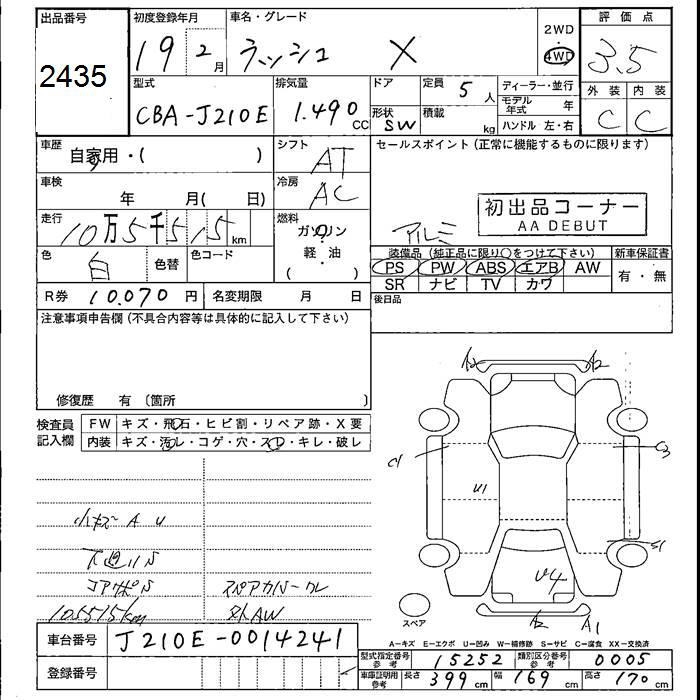 出品番号
2435
初度登録年月
19 2月
車名・グレード
ラッシュ X
2WD
4WD
評価点
3.5
型式
CBA-J210E
排気量
1.490 CC
ドア
形状
SW
定員
5 人
積載
kg
ディーラー・並行
モデル年式 年
ハンドル 左・右
外装 内装
C C
車歴
自家用・( )
シフト
AT
セールスポイント (正常に機能するものに限ります)
車検
年 月( 日)
冷房
AC
初出品コーナー
AA DEBUT
アルミ
走行
10万5千515km
燃料
ガソリン
軽・油
( )
色
白
色替
色コード
装備品 (純正品に限り○をつけて下さい)
PS PW ABS エアB AW
SR ナビ TV カワ
新車保証書
有・無
R券 10.070 円
名変期限 月 日
後日品
注意事項申告欄 (不具合内容等は具体的に記入して下さい)
修復歴 有 〔箇所 〕
検査員
記入欄
FW キズ・飛石・ヒビ割・リペア跡・X要
内装 キズ・汚レ・コゲ・穴・スレ・キレ・破レ
小キズ A U
下廻りS
コアサポS
105515km
スペアカバークレ
社外AW
A2 A2
C1 C3
U1
S1
U4
A2 A1
スペア
A−キズ E−エクボ U−凹み W−補修跡 S−サビ C−腐食 XX−交換済
車台番号 J210E-0014241
登録番号
型式指定番号 参考 15252
類別区分番号 参考 0005
車庫証明用 参考 長さ 399 cm 幅 169 cm 高さ 170 cm